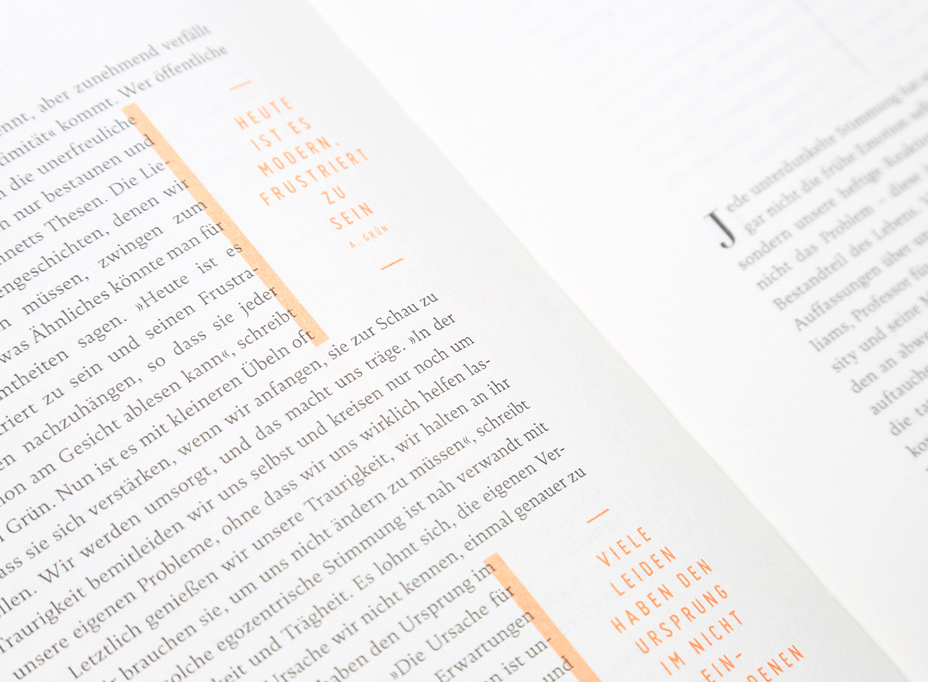 ennt, aber zunehmend verfällt
timität« kommt. Wer öffentliche
n die unerfreuliche
n nur bestaunen und
nnetts Thesen. Die Lie-
engeschichten, denen wir
n müssen, zwingen zum
was Ähnliches könnte man für
mtheiten sagen. »Heute ist es
riert zu sein und seinen Frustra-
en nachzuhängen, so dass sie jeder
hon am Gesicht ablesen kann«, schreibt
Grün. Nun ist es mit kleineren Übeln oft
ass sie sich verstärken, wenn wir anfangen, sie zur Schau zu
llen. Wir werden umsorgt, und das macht uns träge. »In der
Traurigkeit bemitleiden wir uns selbst und kreisen nur noch um
unsere eigenen Probleme, ohne dass wir uns wirklich helfen las-
Letztlich genießen wir unsere Traurigkeit, wir halten an ihr
brauchen sie, um uns nicht ändern zu müssen«, schreibt
olche egozentrische Stimmung ist nah verwandt mit
keit und Trägheit. Es lohnt sich, die eigenen Ver-
Ursache wir nicht kennen, einmal genauer zu
haben den Ursprung im
»Die Ursache für
Erwartungen
n ist un-
und
HEUTE
IST ES
MODERN,
FRUSTRIERT
ZU
SEIN
A. GRÜN
VIELE
LEIDEN
HABEN DEN
URSPRUNG
IM NICHT
EIN-
DENEN
Jede unterdunkelte Stimmung
gar nicht die frühe Emotion
sondern unsere heftige Reakti
nicht das Problem – diese
Bestandteil des Lebens.
Auffassungen über
liams, Professor
sity und seine
den an
auftauche
die